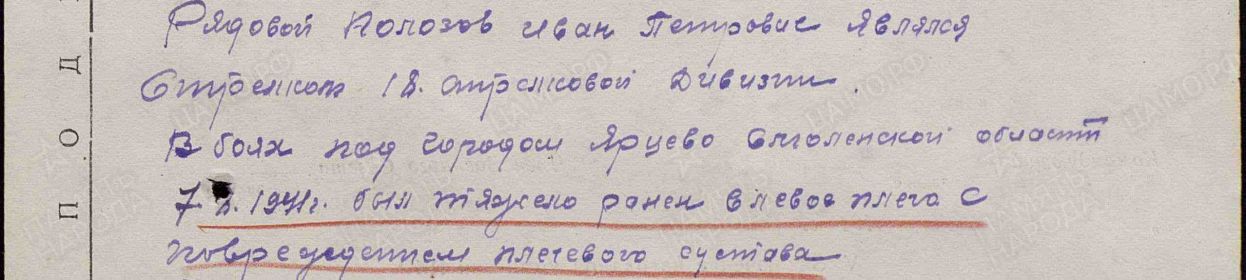 Рядовой Полозов Иван Петрович являлся
Стрелком 18. стрелковой дивизии.
В боях под городом Ярцево Смоленской области
7. 1941г. был тяжело ранен в левое плечо с
повреждением плечевого сустава
ПОД